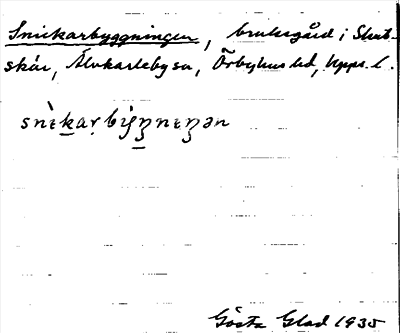 Snickarbyggningen, bruksgård i Skut-
skär, Älvkarleby sn, Örbyhus hd, Upps. l.
snìkaṛbi̇̀gnıŋən
Gösta Glad 1935